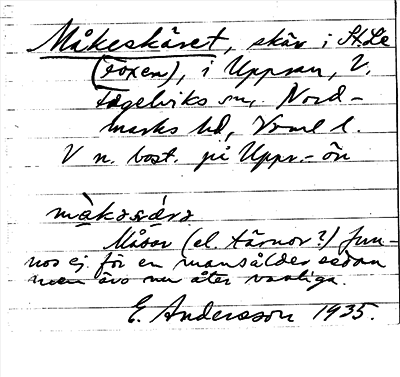 Måkeskäret, skär i St. Le
(sjoxen), i Uppsan, V.
Fågelviks sn, Nord-
marks hd, Vrml l.
V n. bost. på Upps.-ön
måkasǽra
Måsar (el. tärnor?) fun-
nos ej för en mansålder sedan
men äro nu åter vanliga.
E. Andersson 1935.